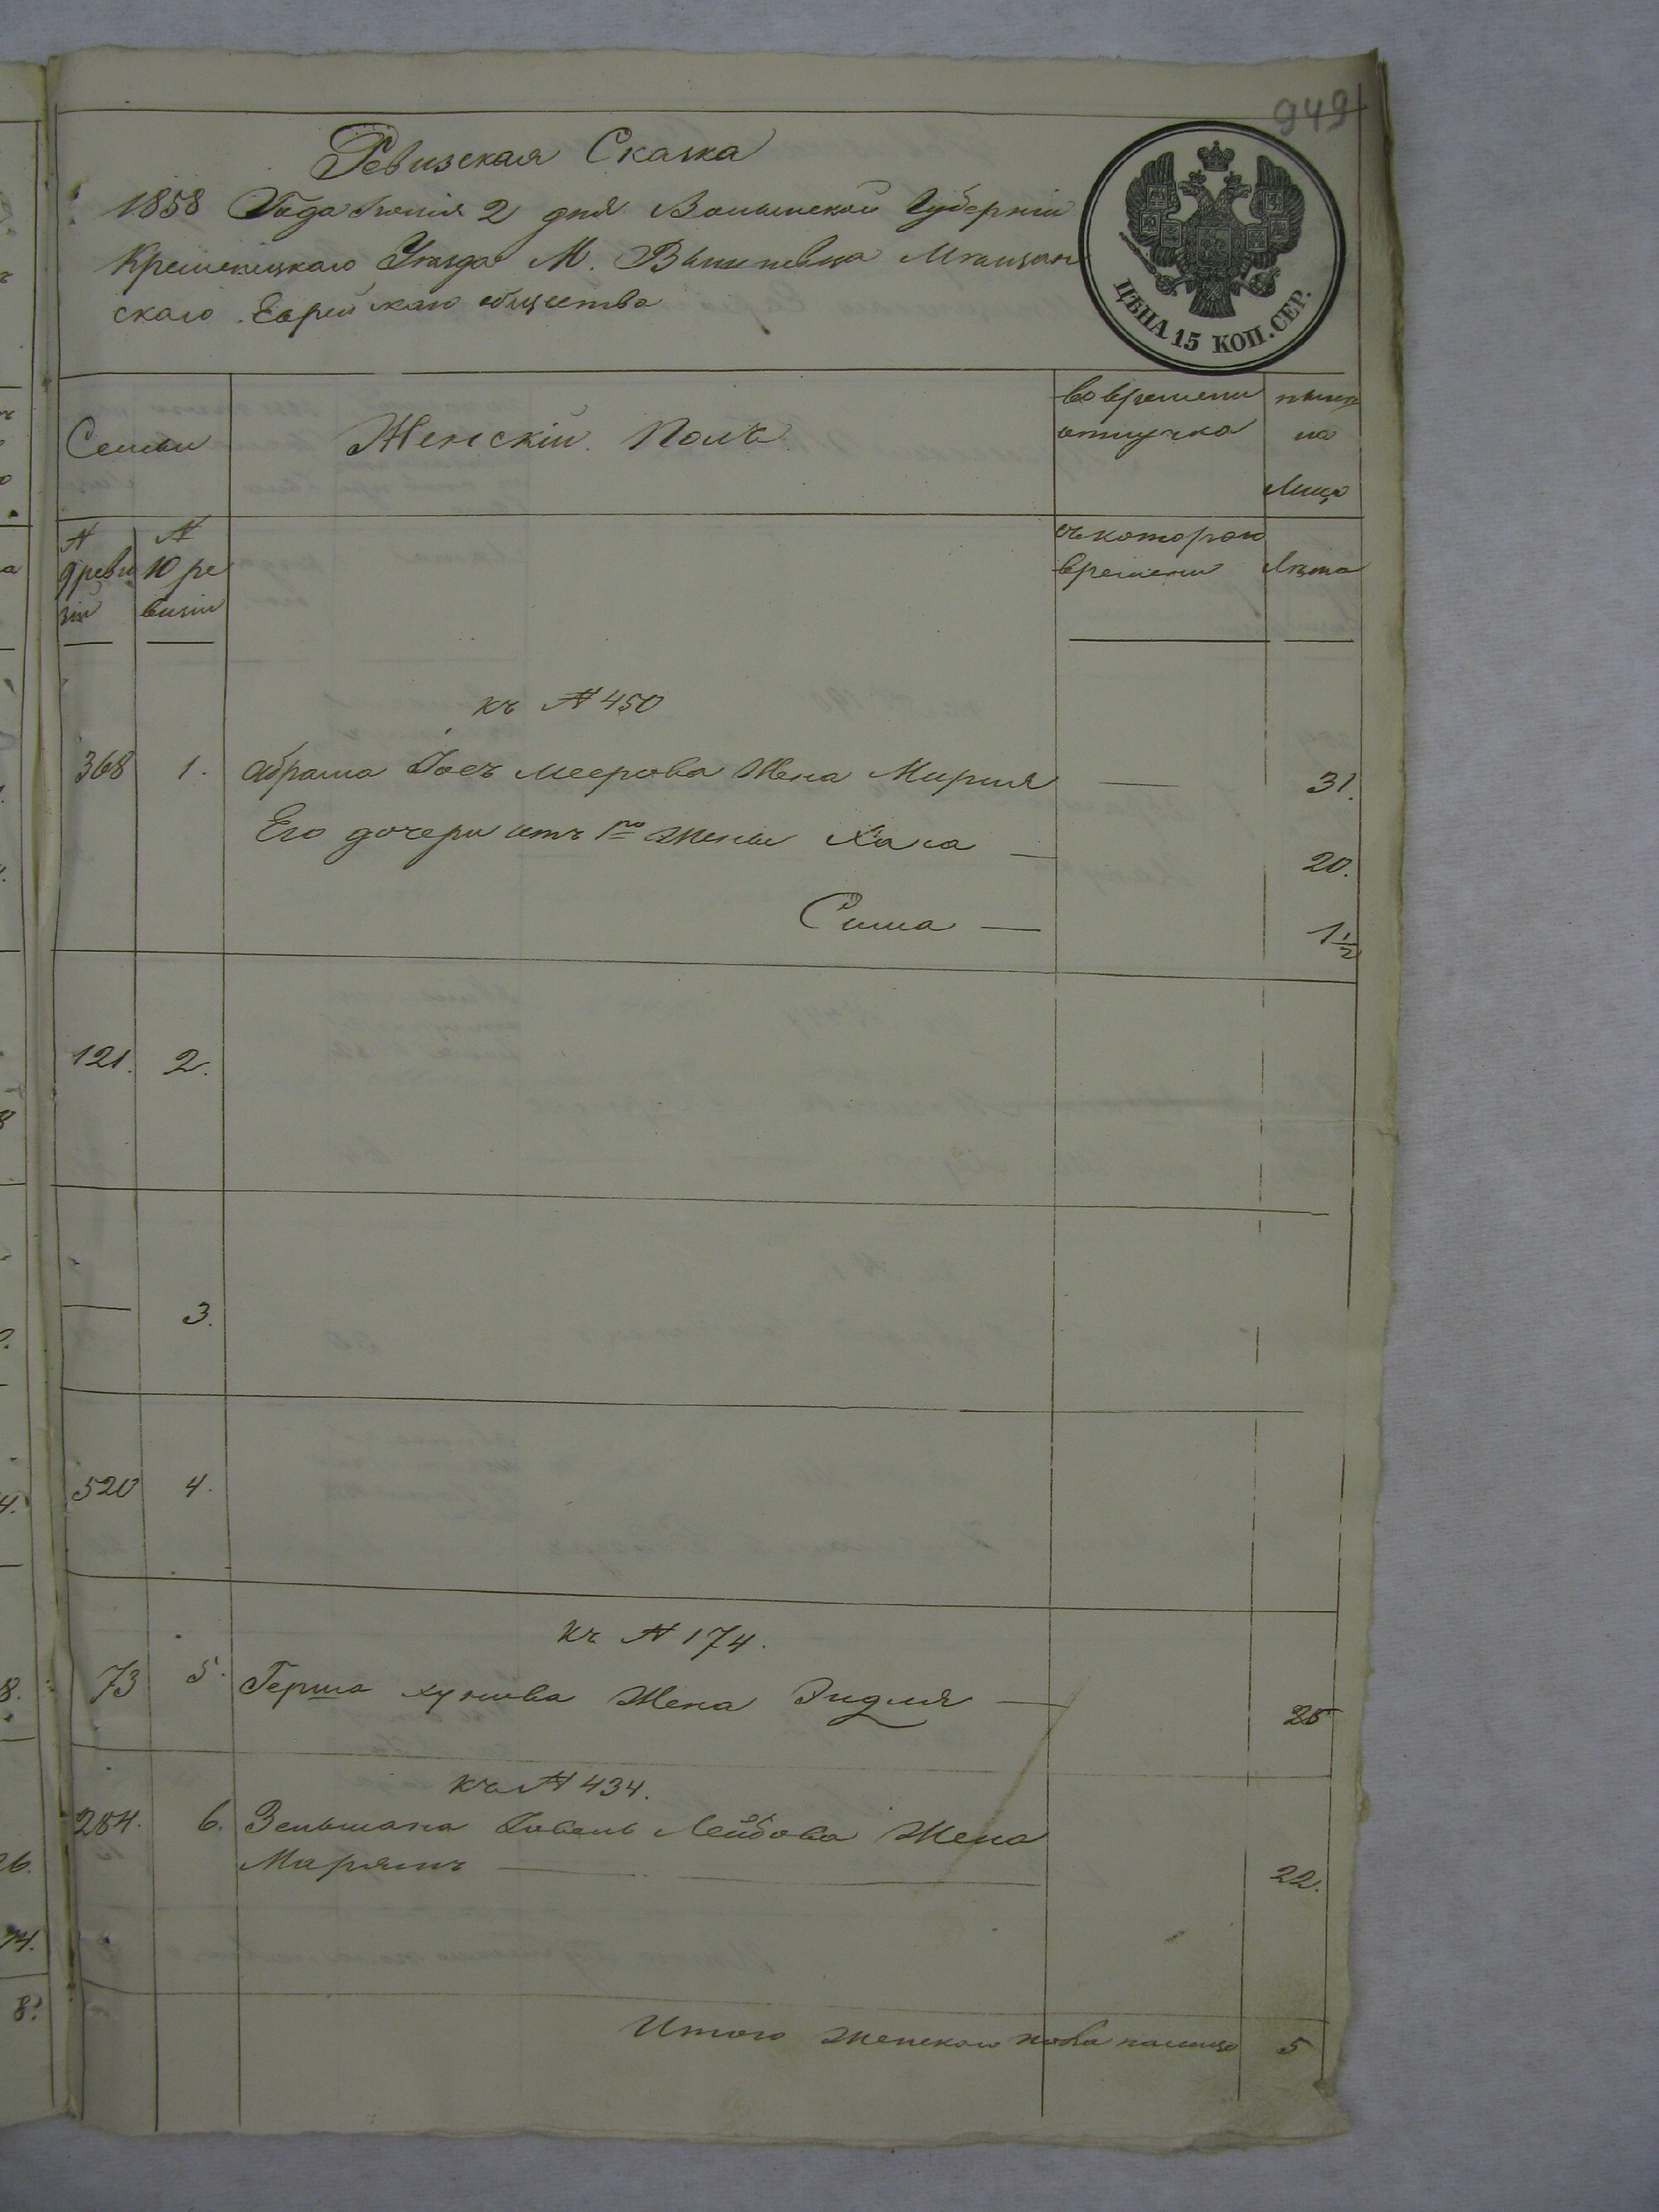 949
Ревизская Сказка
1858 Года Июня 2 дня Волынской Губерніи
Кременецкаго Уѣзда М. Вишневца Мѣщан
скаго Еврейскаго общества
ЦѢНА 15 КОП. СЕР.
Семьи
Женскій Полъ
во временной отлучкѣ
нынѣ на Лицо
№ 9 ревизіи
№ 10 ревизіи
съ котораго времени
Лѣта
къ № 450
368 1. Абрама Іосъ Меерова Жена Мирля — 31.
Его дочери отъ 1й Жены Хана — 20.
Сима — 1 1/2
121. 2.
— 3.
520 4.
къ № 174.
73 5. Герша Хунова Жена Эидля — 25
къ № 434.
284. 6. Зельмана Іовель Лейбова Жена
Марямъ — 22.
Итого Женскаго пола налицо 5